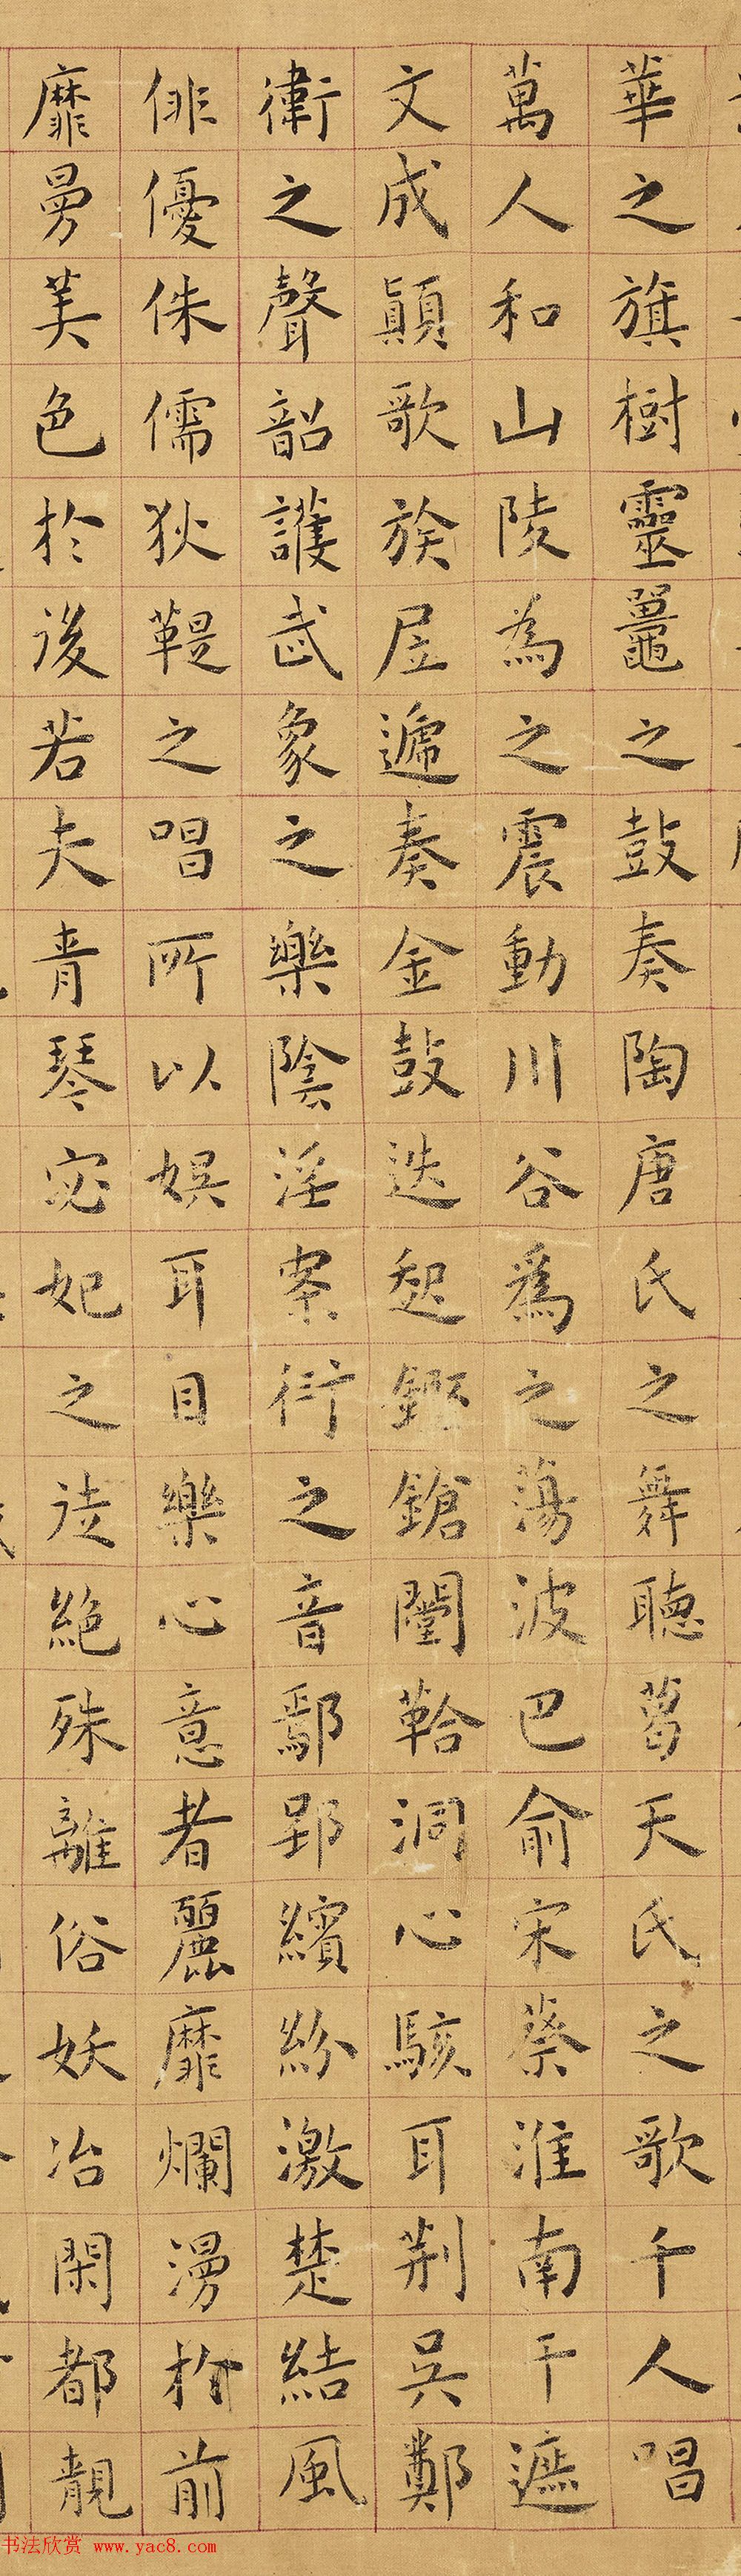 華之旗樹靈鼉之鼓奏陶唐氏之舞聽葛天氏之歌千人唱
萬人和山陵為之震動川谷爲之蕩波巴俞宋蔡淮南干遮
文成顛歌族居遞奏金鼓迭起鏗鎗闛鞈洞心駭耳荆吳鄭
衛之聲韶護武象之樂陰淫案衍之音鄢郢繽紛激楚結風
俳優侏儒狄鞮之唱所以娛耳目樂心意者麗靡爛漫於前
靡曼美色於後若夫青琴宓妃之徒絶殊離俗妖冶閑都靚
书法欣赏 www.yac8.com